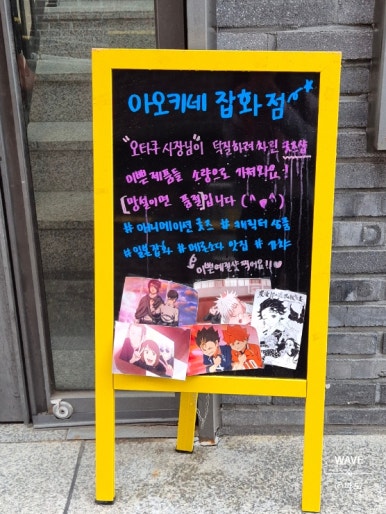 아오키네 잡화점
"오타쿠 사장님"이 덕질하려 차린 굿즈샵
이쁜 제품들 소량으로 가져와요!
[망설이면 품절]입니다
# 애니메이션 굿즈 # 캐릭터 상품
# 일본잡화 # 메론소다 맛집 # 가챠
이쁜 메론샷 찍어요!!
WAVE